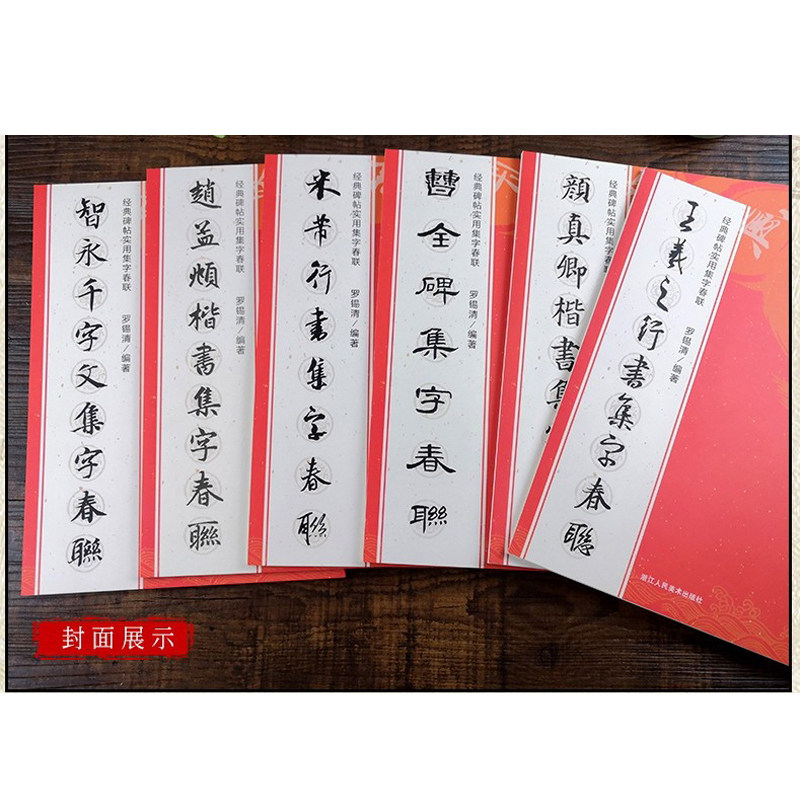 智永千字文集字春聯
经典碑帖实用集字春联
罗锡清/编著
趙孟頫楷書集字春聯
经典碑帖实用集字春联
罗锡清/编著
米芾行書集字春聯
经典碑帖实用集字春联
罗锡清/编著
曹全碑集字春聯
顏真卿楷書集
经典碑帖实用集字春联
王羲之行書集字春聯
经典碑帖实用集字春联
罗锡清/编著
浙江人民美术出版社
封面展示